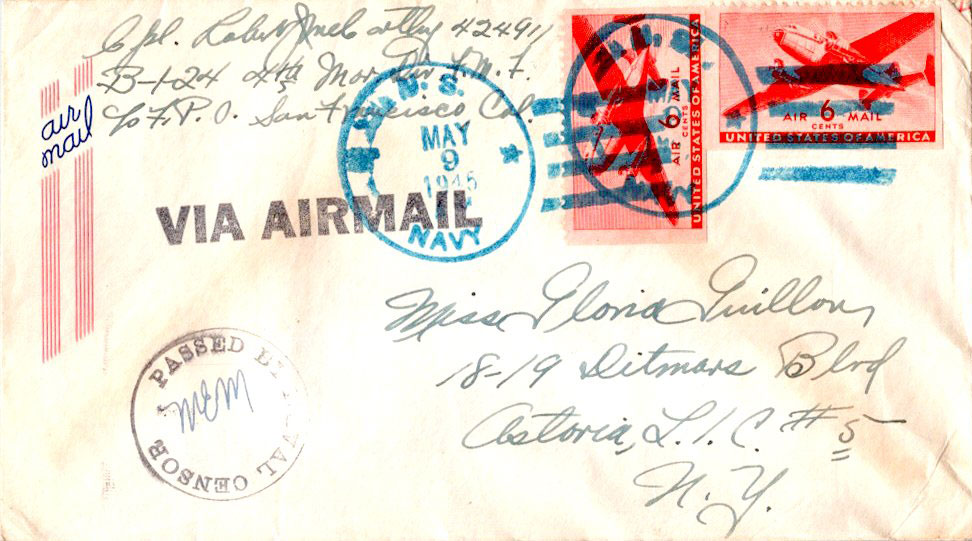 Cpl. Robert J. McCarthy 424911
B-1-24 4th Mar. Div. F.M.F.
c/o F.P.O. San Francisco Cal.
air
mail
U.S.
MAY
9
1945
NAVY
VIA AIRMAIL
AIR 6 MAIL
CENTS
UNITED STATES OF AMERICA
AIR 6 MAIL
CENTS
UNITED STATES OF AMERICA
Miss Gloria Guillon
18-19 Ditmars Blvd
Astoria, L.I.C. #5
N.Y.
PASSED BY NAVAL CENSOR